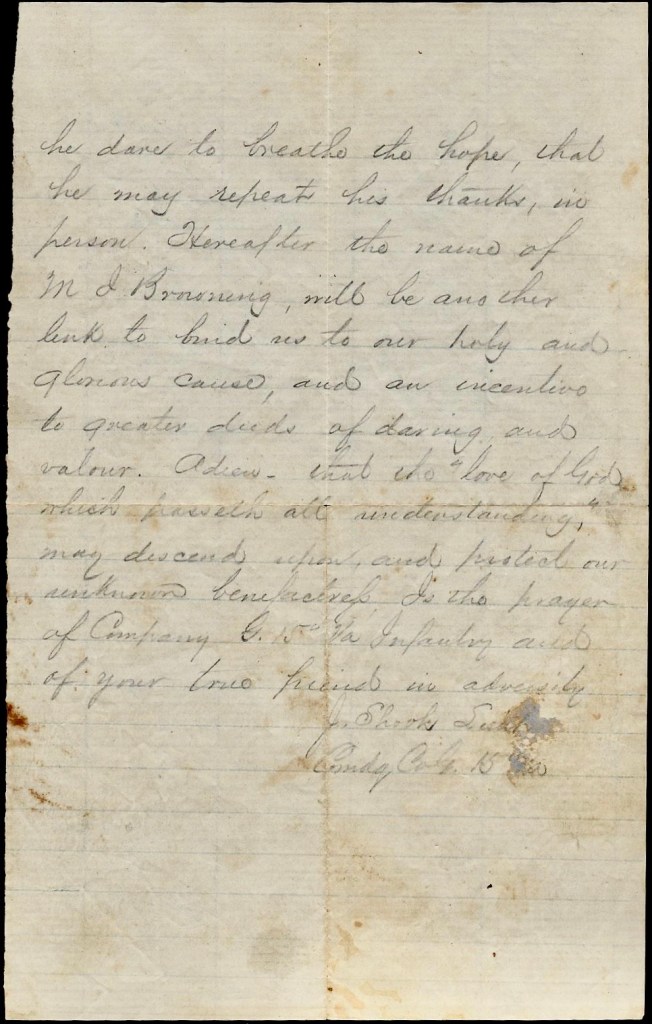 he dare to breathe the hope, that
he may repeat his thanks, in
person. Hereafter the name of
M J Browning, will be another
link to bind us to our holy and
glorious cause, and an incentive
to greater deeds of daring and
valour. Adieu - that the "love of God
which passeth all understanding,"
may descend upon, and protect our
unknown benefactress, Is the prayer
of Company G. 15th Va Infantry and
of your true friend in adversity
Shook Lieut
Comdg Co G. 15 Va